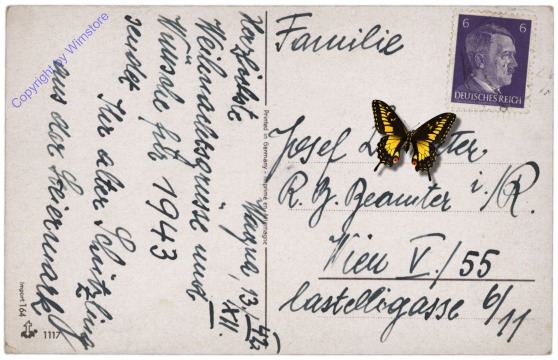 Herzlichste
Weihnachtsgrüsse und
Wünsche für 1943
sendet
Ihr alter Schützling
aus der Steiermark
Wagna, 13./XII. 42
Printed in Germany - Imprimé en Allemagne
Import 164
1117
Familie
Josef
R. B. Beamter i./R.
Wien V./55
Castelligasse 6/11
6 6
DEUTSCHES REICH
Copyright by Wimstore